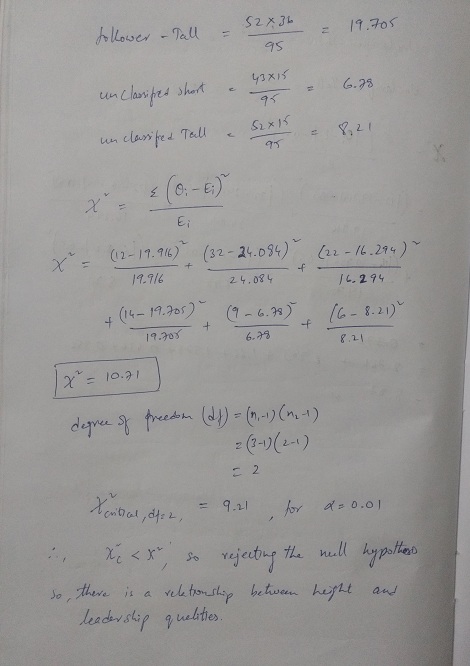 follower - Tall = 52 × 36 / 95 = 19.705
unclassified short = 43×15 / 95 = 6.78
unclassified Tall = 52×15 / 95 = 8.21
χ² = Σ (Oi - Ei)² / Ei
χ² = (12-19.916)² / 19.916 + (32-24.084)² / 24.084 + (22-16.294)² / 16.294
+ (14-19.705)² / 19.705 + (9-6.78)² / 6.78 + (6-8.21)² / 8.21
χ² = 10.71
degree of freedom (df) = (n₁-1)(n₂-1)
= (3-1)(2-1)
= 2
χ² critical, df=2, = 9.21, for α = 0.01
∴, χ²c < χ², so rejecting the null hypothesis
so, there is a relationship between height and
leadership qualities.